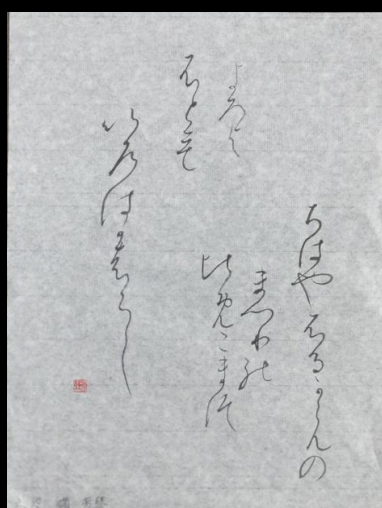 ちはやふるかもの
まつりの
ひめこまつ
よろつよ
ふとも
いろはかはらし